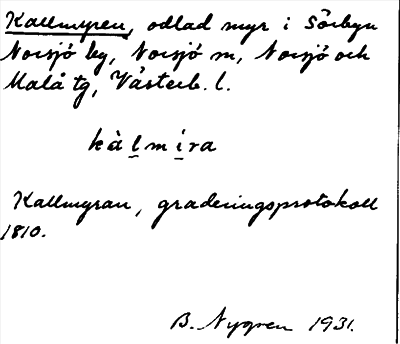 Kallmyren, odlad myr i Sörbyn
Norsjö by, Norsjö sn, Norsjö och
Malå tg, Västerb. l.
kàlmira
Kallmyran, graderingsprotokoll
1810.
B. Nygren 1931.